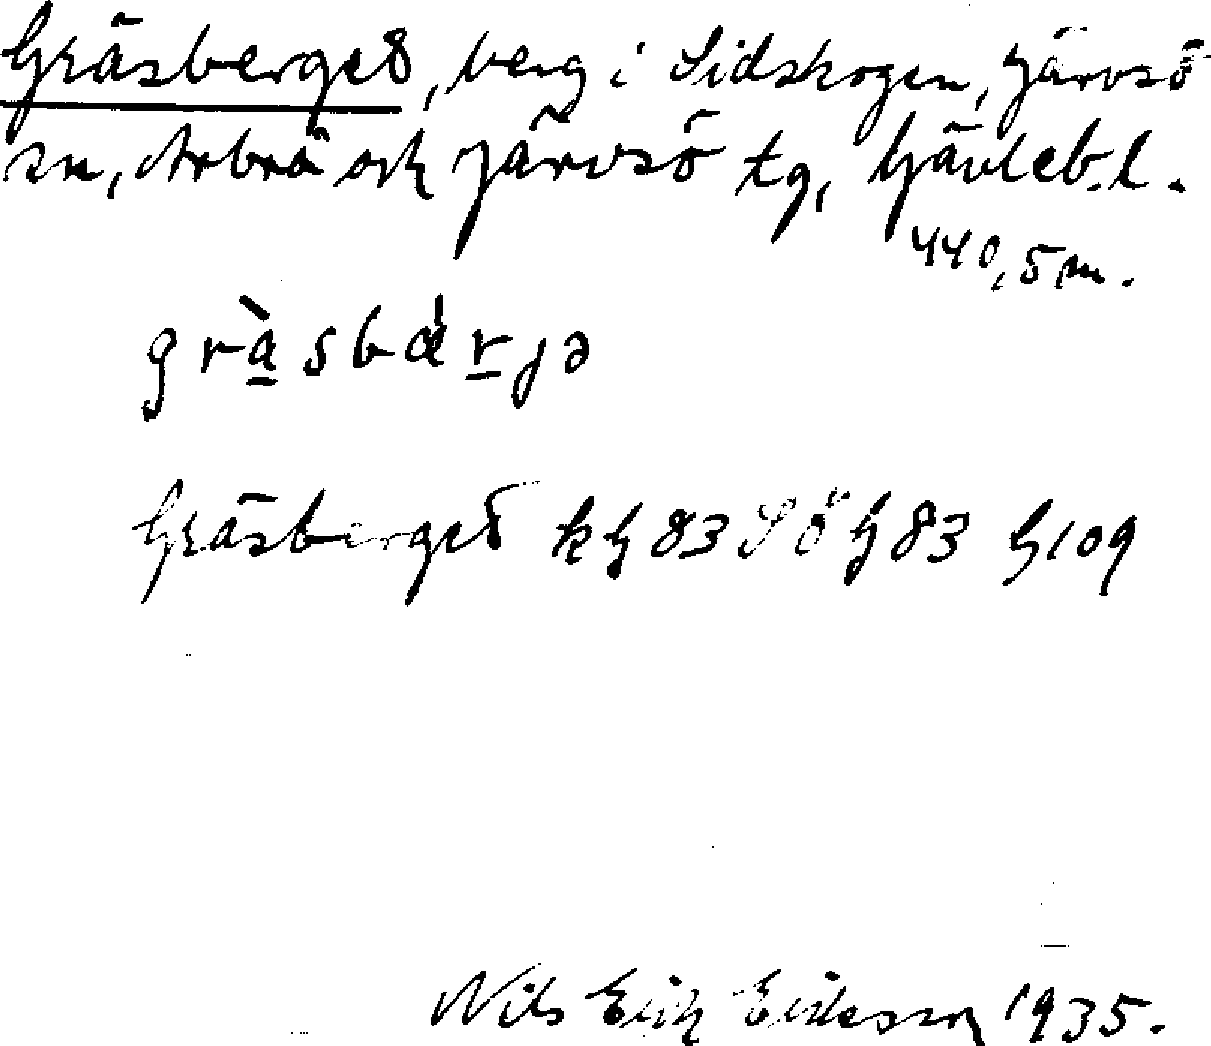 Gräsberget, berg i Sidskogen, Järvsö
sn, Arbrå och Järvsö tg, Gävleb.l.
440,5 m.
gràsbǽrjə
Gräsberget kg 83 Sö G 83 G109
Nils Erik Eriksson 1935.